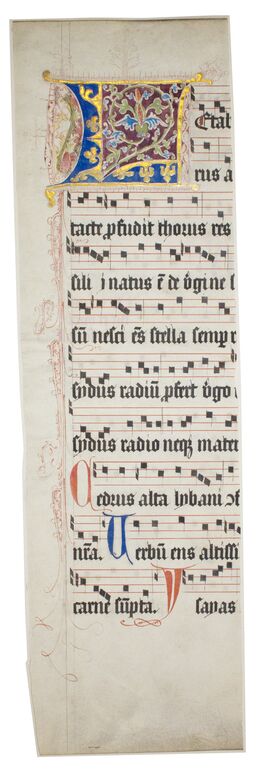 LEtab
rus a
tacte ꝓfudit thorus res
silii natus ē de v̾gine s
sū nesciēs stella semꝑ r
sydus radiū ꝓfert v̾go
sydus radio neqꝫ mater
Cedrus alta lybani ↄf
nr̄a. Verbū ens altissi
carne sūpta. Ysayas